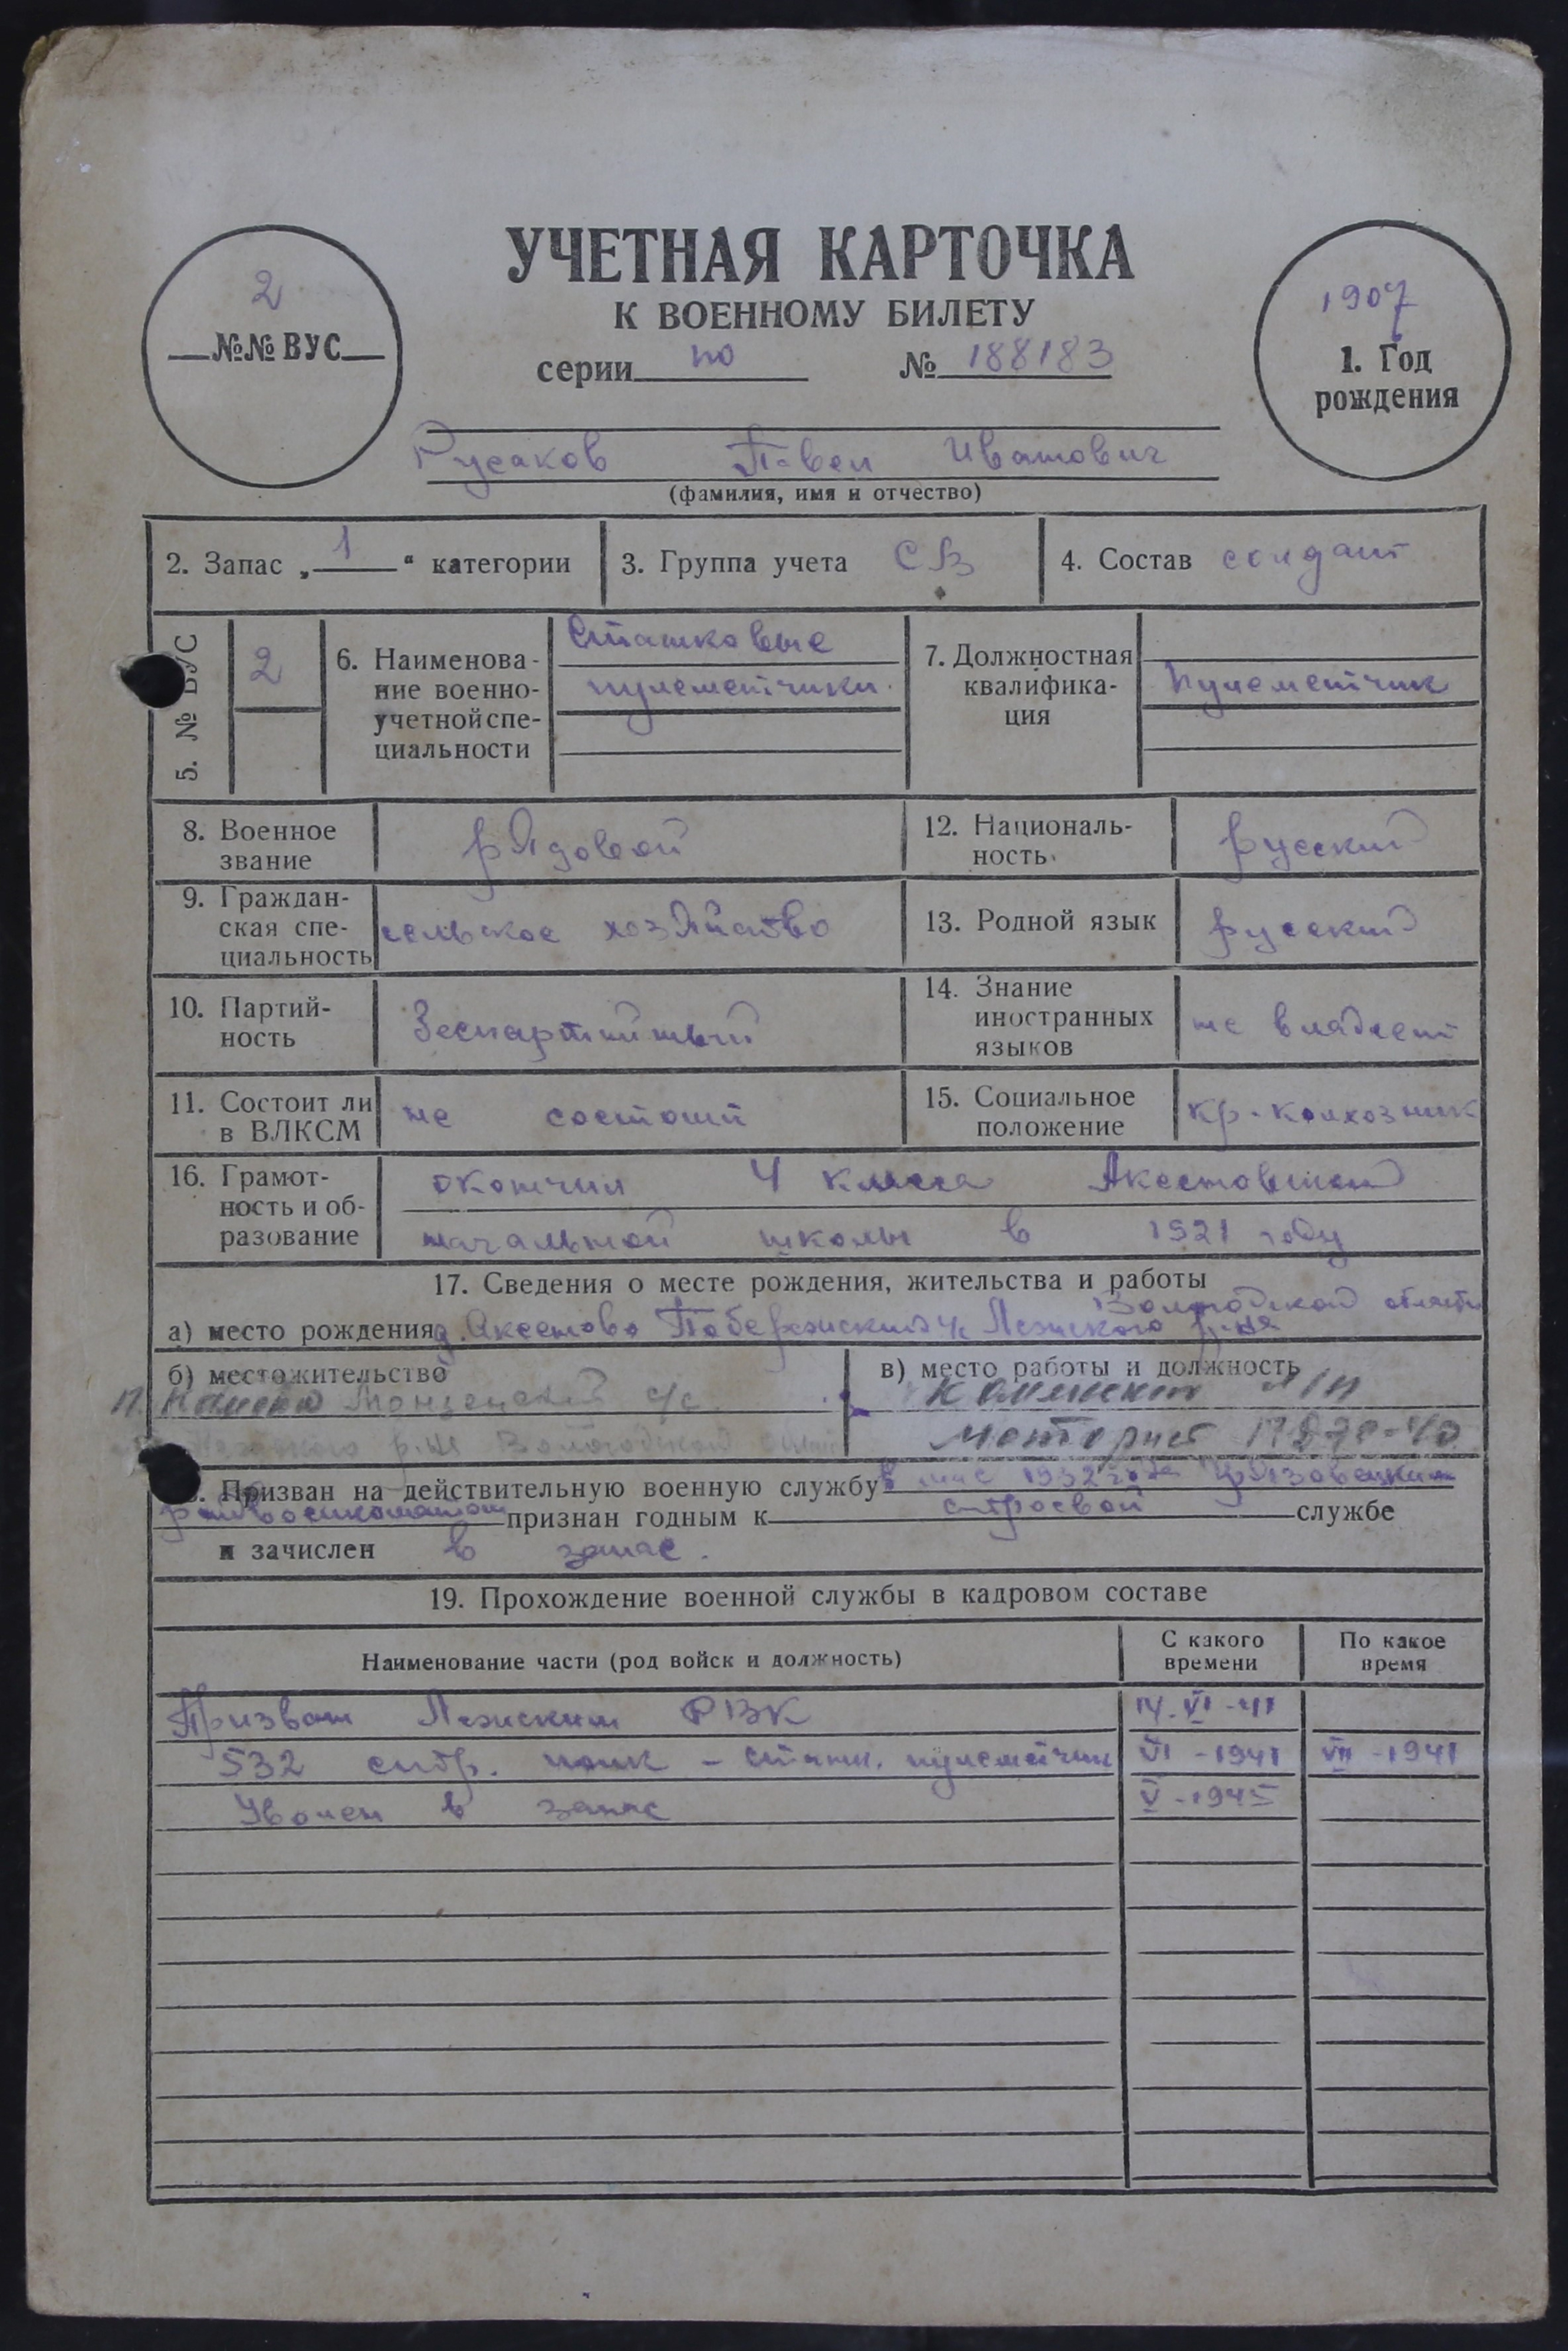 УЧЕТНАЯ КАРТОЧКА
К ВОЕННОМУ БИЛЕТУ
2
№№ ВУС
серии по № 188183
1907
1. Год
рождения
Русаков Павел Иванович
(фамилия, имя и отчество)
2. Запас „ 1 “ категории
3. Группа учета СВ
4. Состав солдат
5. № ВУС
2
6. Наименова-
ние военно-
учетной спе-
циальности
Станковые
пулеметчики.
7. Должностная
квалифика-
ция
пулеметчик
8. Военное
звание
рядовой
12. Националь-
ность
русский
9. Граждан-
ская спе-
циальность
сельское хозяйство
13. Родной язык
русский
10. Партий-
ность
Беспартийный
14. Знание
иностранных
языков
не владеет
11. Состоит ли
в ВЛКСМ
не состоит
15. Социальное
положение
кр-колхозник
16. Грамот-
ность и об-
разование
окончил 4 класса
начальной школы в 1921 году
17. Сведения о месте рождения, жительства и работы
Вологодской области
а) место рождения д. Аксеново Лежского р-на
б) местожительство
с/с
р-на Вологодской
в) место работы и должность
моторист
Призван на действительную военную службу в 1932 года Грязовецким
райвоенкоматом признан годным к строевой службе
и зачислен в запас.
19. Прохождение военной службы в кадровом составе
Наименование части (род войск и должность)
С какого
времени
По какое
время
Призван Лежским РВК
532 стр. полк - станк. пулеметчик VI - 1941 VII - 1941
Уволен в запас V - 1945